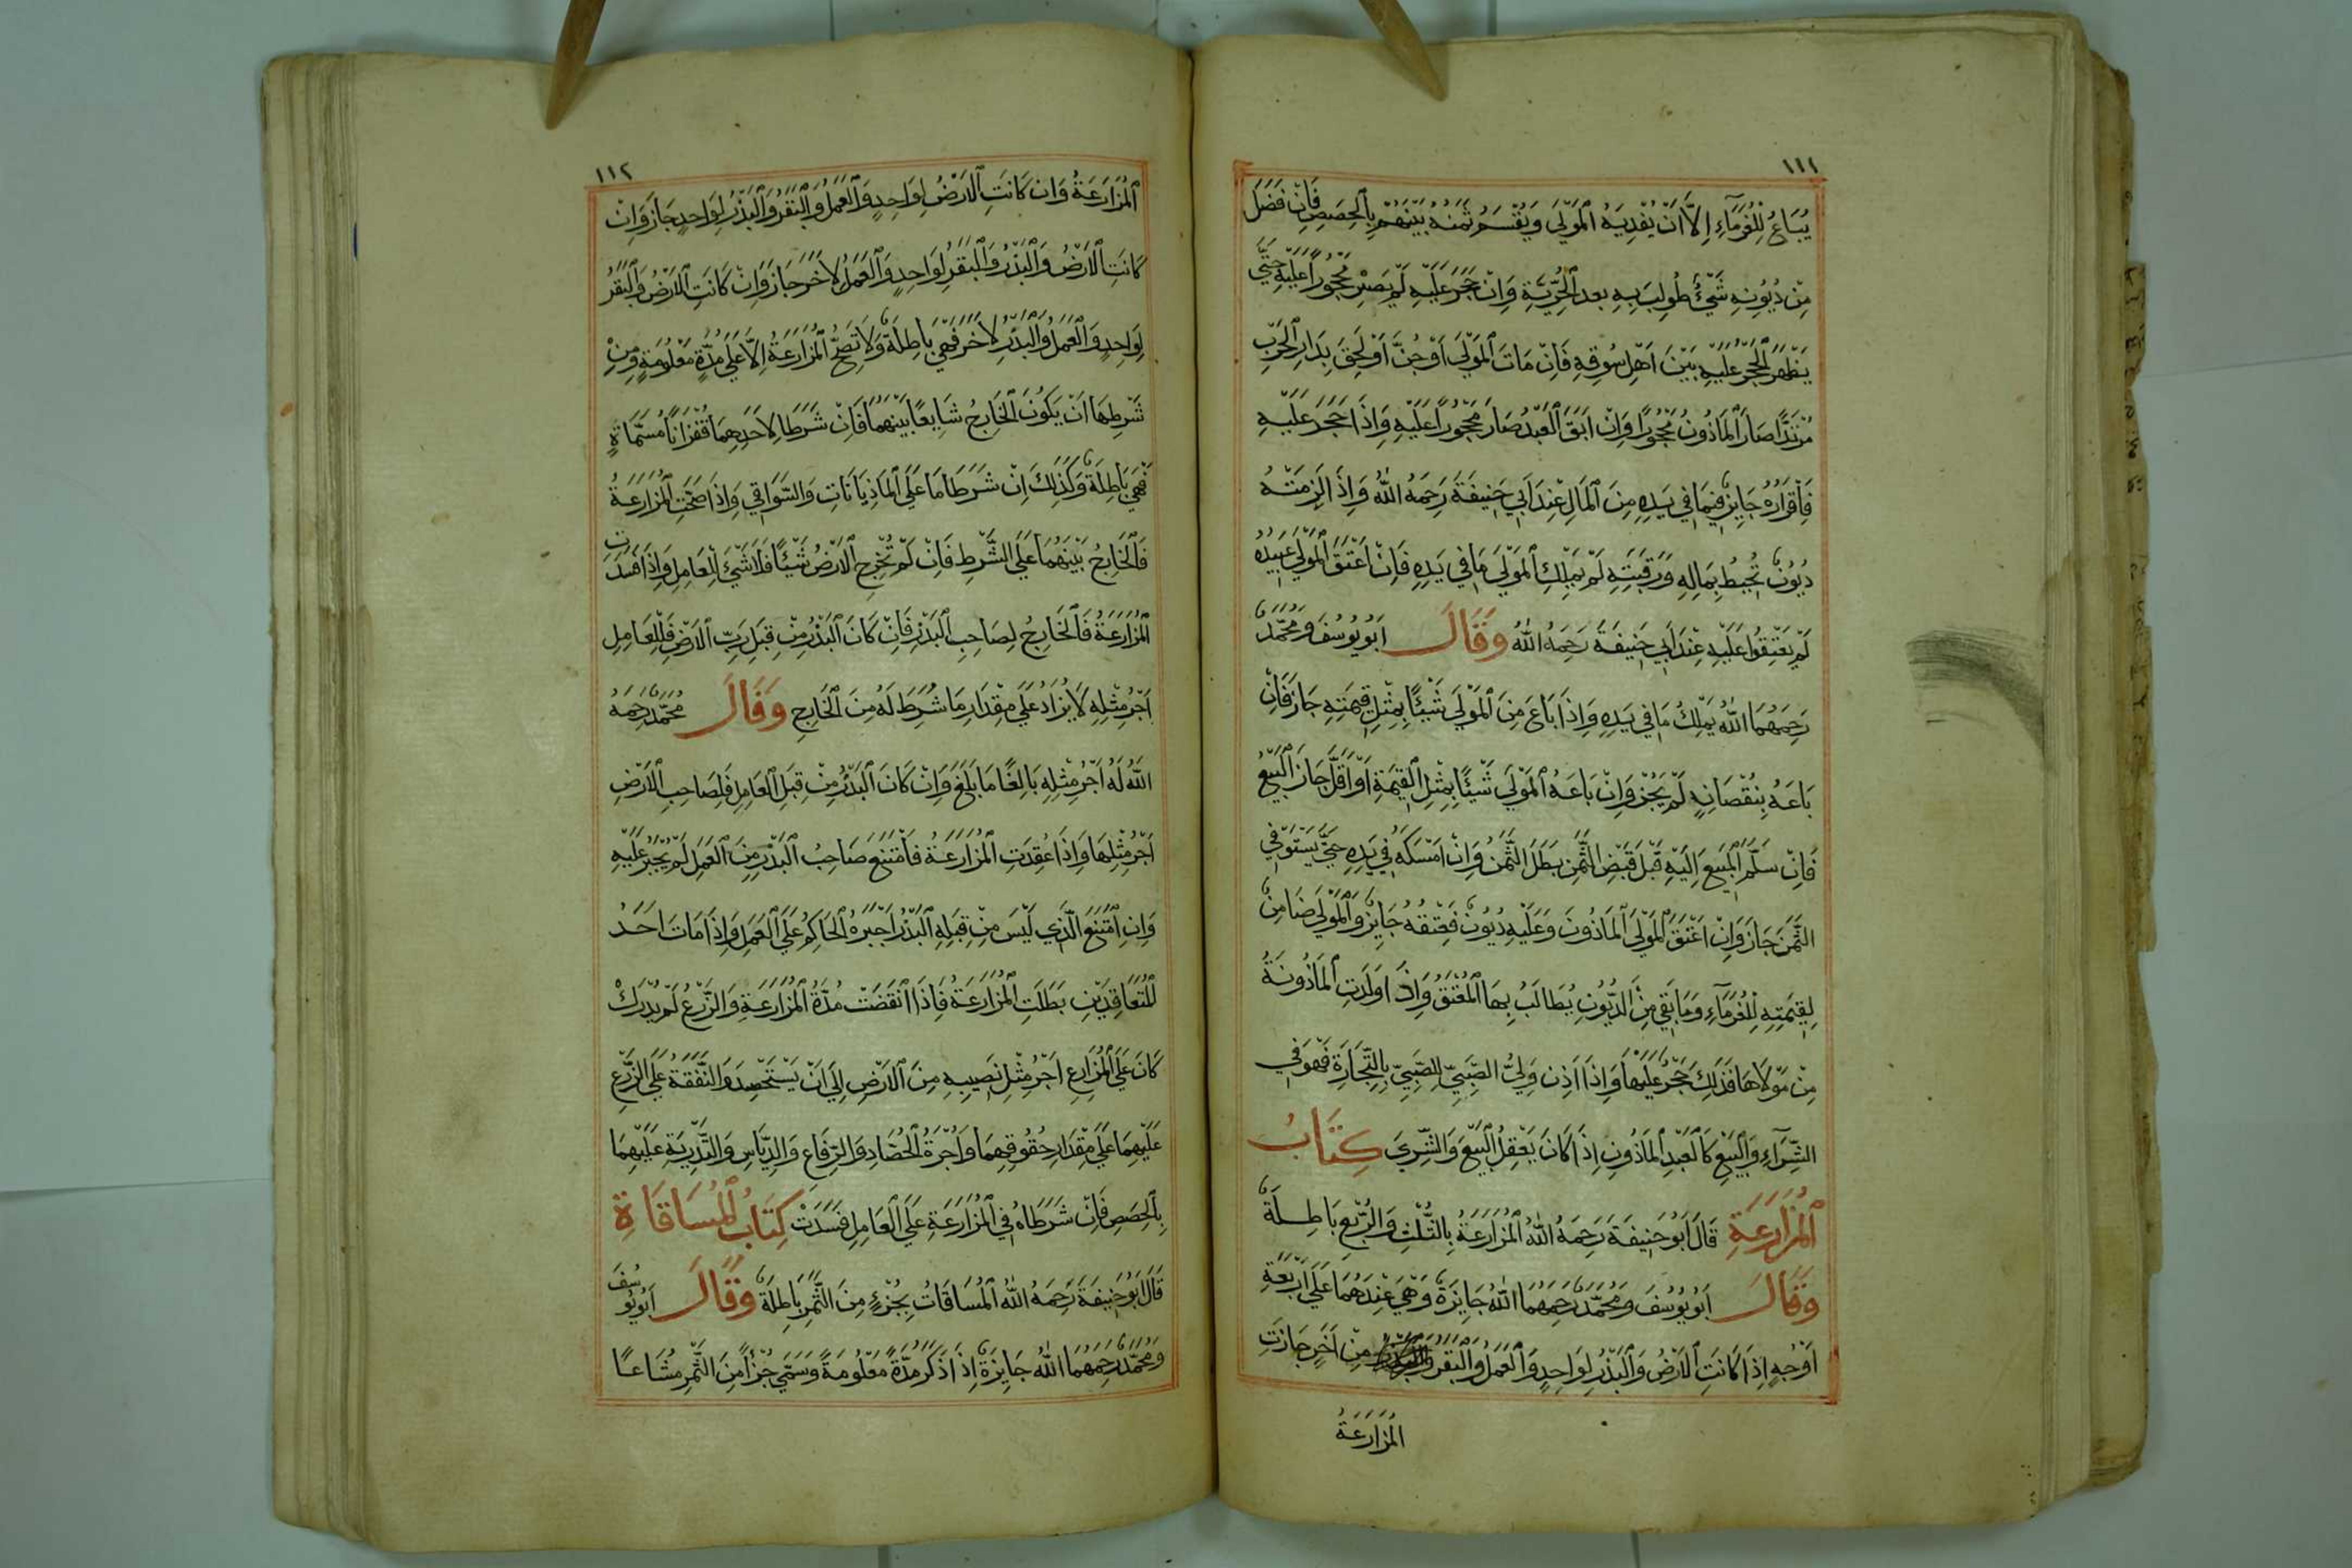 ١١١
يُبَاعُ لِلْغُرَمَآءِ اِلَّا اَنْ يُفْدِيَهُ الْمَوْلَى وَيُقْسَمُ ثَمَنُهُ بَيْنَهُمْ بِالْحِصَصِ فَاِنْ فَضَلَ
مِنْ دُيُوْنِهِ شَيْءٌ طُولِبَ بِهِ بعد الْحُرِّيَّةِ وَاِنْ حَجَرَ عَلَيْهِ لَمْ يَصِرْ مَحْجُورًا عَلَيْهِ حَتَّى
يَظْهَرَ الْحَجْرُ عَلَيْهِ بَيْنَ اَهْلِ سُوقِهِ فَاِنْ مَاتَ الْمَوْلَى اَوْ جُنَّ اَوْ لَحِقَ بِدَارِ الْحَرْبِ
مُرْتَدًّا صَارَ الْمَاذُونُ مَحْجُورًا وَاِنْ اَبَقَ الْعَبْدُ صَارَ مَحْجُورًا عَلَيْهِ وَاِذَا حَجَرَ عَلَيْهِ
فَاِقْرَارُهُ جَايِزٌ فِيمَا فِي يَدِهِ مِنَ الْمَالِ عِنْدَ اَبِي حَنِيفَةَ رَحِمَهُ اللهُ وَاِذَا لَزِمَتْهُ
دُيُونٌ تُحِيطُ بِمَالِهِ وَرَقَبَتِهِ لَمْ يَمْلِكِ الْمَوْلَى مَا فِي يَدِهِ فَاِنْ اَعْتَقَ الْمَوْلَى عَبِيدَهُ
لَمْ يَعْتِقُوا عَلَيْهِ عِنْدَ اَبِي حَنِيفَةَ رَحِمَهُ اللهُ وَقَالَ اَبُو يُوسُفَ وَمُحَمَّدٌ
رَحِمَهُمَا اللهُ يَمْلِكُ مَا فِي يَدِهِ وَاِذَا بَاعَ مِنَ الْمَوْلَى شَيْئًا بِمِثْلِ قِيمَتِهِ جَازَ فَاِنْ
بَاعَهُ بِنُقْصَانٍ لَمْ يَجُزْ وَاِنْ بَاعَهُ الْمَوْلَى شَيْئًا بِمِثْلِ الْقِيمَةِ اَوْ اَقَلَّ جَازَ الْبَيْعُ
فَاِنْ سَلَّمَ الْمَبِيعَ اِلَيْهِ قَبْلَ قَبْضِ الثَّمَنِ بَطَلَ الثَّمَنُ وَاِنْ اَمْسَكَهُ فِي يَدِهِ حَتَّى يَسْتَوْفِيَ
الثَّمَنَ جَازَ وَاِنْ اَعْتَقَ الْمَوْلَى الْمَاذُونَ وَعَلَيْهِ دُيُونٌ فَعِتْقُهُ جَايِزٌ وَالْمَوْلَى ضَامِنٌ
لِقِيمَتِهِ لِلْغُرَمَآءِ وَمَا بَقِيَ مِنَ الدُّيُونِ يُطَالَبُ بِهَا الْمُعْتَقُ وَاِذَا وَلَدَتِ الْمَاذُونَةُ
مِنْ مَوْلَاهَا فَذٰلِكَ حَجْرٌ عَلَيْهَا وَاِذَا اَذِنَ وَلِيُّ الصَّبِيِّ لِلصَّبِيِّ بِالتِّجَارَةِ فَهُوَ فِي
الشِّرَآءِ وَالْبَيْعِ كَالْعَبْدِ الْمَاذُونِ اِذَا كَانَ يَعْقِلُ الْبَيْعَ وَالشِّرَى كِتَابُ
الْمُزَارَعَةِ قَالَ اَبُو حَنِيفَةَ رَحِمَهُ اللهُ الْمُزَارَعَةُ بِالثُّلْثِ وَالرُّبْعِ بَاطِلَةٌ
وَقَالَ اَبُو يُوسُفَ وَمُحَمَّدٌ رَحِمَهُمَا اللهُ جَايِزَةٌ وَهِيَ عِنْدَهُمَا عَلَى اَرْبَعَةِ
اَوْجُهٍ اِذَا كَانَتِ الْاَرْضُ وَالْبَذْرُ لِوَاحِدٍ وَالْعَمَلُ وَالْبَقَرُ مِنْ اٰخَرَ جَازَتِ
الْمُزَارَعَةُ
١١٢
الْمُزَارَعَةُ وَاِنْ كَانَتِ الْاَرْضُ لِوَاحِدٍ وَالْعَمَلُ وَالْبَقَرُ وَالْبَذْرُ لِوَاحِدٍ جَازَ وَاِنْ
كَانَتِ الْاَرْضُ وَالْبَذْرُ وَالْبَقَرُ لِوَاحِدٍ وَالْعَمَلُ لِاٰخَرَ جَازَ وَاِنْ كَانَتِ الْاَرْضُ وَالْبَقَرُ
لِوَاحِدٍ وَالْعَمَلُ وَالْبَذْرُ لِاٰخَرَ فَهِيَ بَاطِلَةٌ وَلَا تَصِحُّ الْمُزَارَعَةُ اِلَّا عَلَى مُدَّةٍ مَعْلُومَةٍ وَمِنْ
شَرْطِهَا اَنْ يَكُونَ الْخَارِجُ شَايِعًا بَيْنَهُمَا فَاِنْ شَرَطَا لِاَحَدِهِمَا قُفْزَانًا مُسَمَّاةً
فَهِيَ بَاطِلَةٌ وَكَذٰلِكَ اِنْ شَرَطَا مَا عَلَى الْمَاذِيَانَاتِ وَالسَّوَاقِي وَاِذَا صَحَّتِ الْمُزَارَعَةُ
فَالْخَارِجُ بَيْنَهُمَا عَلَى الشَّرْطِ فَاِنْ لَمْ تُخْرِجِ الْاَرْضُ شَيْئًا فَلَا شَيْءَ لِلْعَامِلِ وَاِذَا فَسَدَتِ
الْمُزَارَعَةُ فَالْخَارِجُ لِصَاحِبِ الْبَذْرِ فَاِنْ كَانَ الْبَذْرُ مِنْ قِبَلِ رَبِّ الْاَرْضِ فَلِلْعَامِلِ
اَجْرُ مِثْلِهِ لَا يُزَادُ عَلَى مِقْدَارِ مَا شُرِطَ لَهُ مِنَ الْخَارِجِ وَقَالَ مُحَمَّدٌ رَحِمَهُ
اللهُ لَهُ اَجْرُ مِثْلِهِ بَالِغًا مَا بَلَغَ وَاِنْ كَانَ الْبَذْرُ مِنْ قِبَلِ الْعَامِلِ فَلِصَاحِبِ الْاَرْضِ
اَجْرُ مِثْلِهَا وَاِذَا عُقِدَتِ الْمُزَارَعَةُ فَامْتَنَعَ صَاحِبُ الْبَذْرِ مِنَ الْعَمَلِ لَمْ يُجْبَرْ عَلَيْهِ
وَاِنِ امْتَنَعَ الَّذِي لَيْسَ مِنْ قِبَلِهِ الْبَذْرُ اَجْبَرَهُ الْحَاكِمُ عَلَى الْعَمَلِ وَاِذَا مَاتَ اَحَدُ
الْمُتَعَاقِدَيْنِ بَطَلَتِ الْمُزَارَعَةُ فَاِذَا انْقَضَتْ مُدَّةُ الْمُزَارَعَةِ وَالزَّرْعُ لَمْ يُدْرَكْ
كَانَ عَلَى الْمُزَارِعِ اَجْرُ مِثْلِ نَصِيبِهِ مِنَ الْاَرْضِ اِلَى اَنْ يَسْتَحْصِدَ وَالنَّفَقَةُ عَلَى الزَّرْعِ
عَلَيْهِمَا عَلَى مِقْدَارِ حُقُوقِهِمَا وَاُجْرَةُ الْحَصَادِ وَالرِّفَاعِ وَالدِّيَاسِ وَالتَّذْرِيَةِ عَلَيْهِمَا
بِالْحِصَصِ فَاِنْ شَرَطَاهُ فِي الْمُزَارَعَةِ عَلَى الْعَامِلِ فَسَدَتْ كِتَابُ الْمُسَاقَاةِ
قَالَ اَبُو حَنِيفَةَ رَحِمَهُ اللهُ الْمُسَاقَاتُ بِجُزْءٍ مِنَ الثَّمَرِ بَاطِلَةٌ وَقَالَ اَبُو يُوسُفَ
وَمُحَمَّدٌ رَحِمَهُمَا اللهُ جَايِزَةٌ اِذَا ذَكَرَ مُدَّةً مَعْلُومَةً وَسَمَّى جُزْأً مِنَ الثَّمَرِ مُشَاعًا